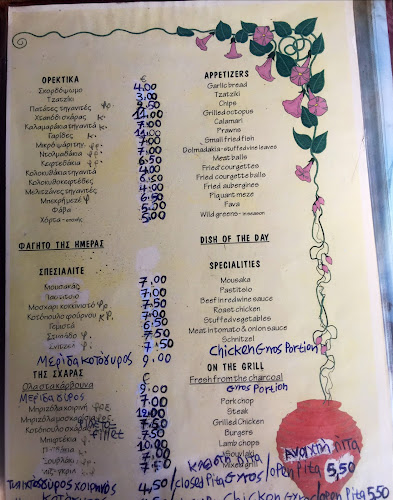 ΟΡΕΚΤΙΚΑ € APPETIZERS
Σκορδόψωμο 4.00 Garlic bread
Τζατζίκι 3.00 Tzatziki
Πατάτες τηγανιτές Chips
Χταπόδι σχάρας κ. Grilled octopus
Καλαμαράκια τηγανιτά κ. 7.00 Calamari
Γαρίδες κ. Prawns
Μικρό ψάρι τηγ. 7.00 Small fried fish
Ντολμαδάκια 7.00 Dolmadakia - stuffed vine leaves
Κεφτεδάκια 6.50 Meat balls
Κολοκυθάκια τηγανιτά 4.00 Fried courgettes
Κολοκυθοκεφτέδες 6.50 Fried courgette balls
Μελιτζάνες τηγανιτές 4.00 Fried aubergines
Μπεκρή μεζέ 6.50 Piquant meze
Φάβα 5.50 Fava
Χόρτα - εποχής 5.00 Wild greens - in season
ΦΑΓΗΤΟ ΤΗΣ ΗΜΕΡΑΣ DISH OF THE DAY
ΣΠΕΣΙΑΛΙΤΕ SPECIALITIES
Μουσακάς 7.00 Mousaka
Παστίτσιο 7.00 Pastitsio
Μοσχάρι κοκκινιστό 7.50 Beef in red wine sauce
Κοτόπουλο φούρνου 7.00 Roast chicken
Γεμιστά 6.50 Stuffed vegetables
Στιφάδο 7.50 Meat in tomato & onion sauce
Σνίτσελ 7.50 Schnitzel
Μερίδα κοτόγυρος 9.00 Chicken Gyros Portion
ΤΗΣ ΣΧΑΡΑΣ € ON THE GRILL
Όλα στα κάρβουνα Fresh from the charcoal
Μερίδα γύρος 9.00 Gyros Portion
Μπριζόλα χοιρινή Pork chop
Μπριζόλα μοσχαρίσια 12.00 Steak
Κοτόπουλο σχάρας φιλέτο fillet Grilled Chicken
Μπιφτέκια Burgers
Lamb chops
Σουβλάκι Souvlaki
Mixed grill
ανοιχτή πίτα
κλειστή πίτα / open Pita 5,50
Πίτα γύρος χοιρινός 4,50 / closed Pita Gyros
Chicken Gyros / open Pita 5.50